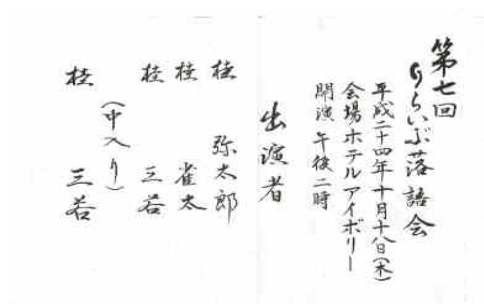 第七回
りらいぶ落語会
平成二十四年十月十八日(木)
会場ホテルアイボリー
開演 午後二時
出演者
桂 弥太郎
桂 雀太
桂 三若
(中入り)
桂 三若